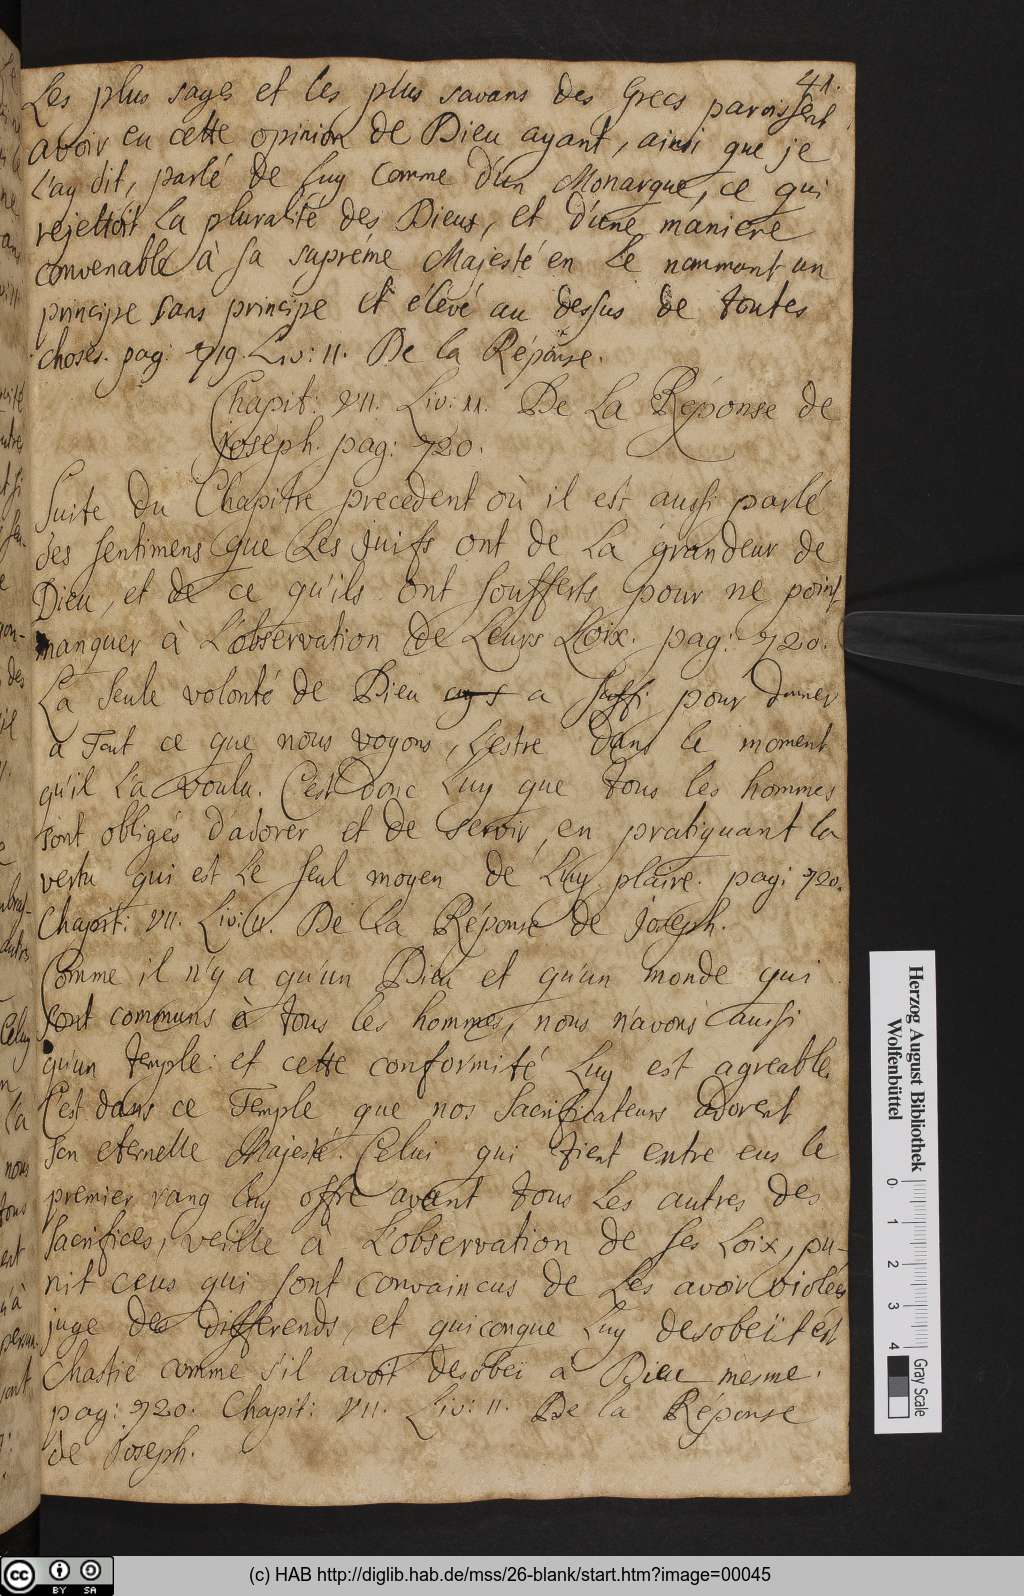 41.
Les plus sages et les plus savans des Grecs paroissent
avoir eu cette opinion de Dieu ayant, ainsi que je
l'ay dit, parlé de luy comme d'un Monarque, ce qui
rejettoit la pluralité des Dieus, et d'une maniere
convenable à sa supréme Majesté en le nommant un
principe sans principe et élevé au dessus de toutes
choses. pag: 719. Liv: II. De la Réponse.
Chapit: VII. Liv: II. De La Réponse de
joseph. pag: 720.
Suite du Chapitre precedent où il est aussi parlé
des sentimens que Les juifs ont de La grandeur de
Dieu, et de ce qu'ils ont soufferts pour ne point
manquer à L'observation de Leurs Loix. pag: 720.
La seule volonté de Dieu a suffi pour donner
a Tout ce que nous voyons, L'estre dans le moment
qu'il L'a voulu. C'est donc Luy que tous les hommes
sont obligés d'adorer et de servir, en pratiquant la
vertu qui est Le seul moyen de Luy plaire. pag: 720.
Chapit: VII. Liv: II. De la Réponse de joseph.
Comme il n'y a qu'un Dieu et qu'un monde qui
sont communs à tous les hommes, nous n'avons aussi
qu'un temple: et cette conformité Luy est agreable.
C'est dans ce Temple que nos Sacrificateurs adorent
son eternelle Majesté. Celui qui tient entre eus le
premier rang luy offre avant tous Les autres des
sacrifices, veille à L'observation de ses Loix, pu-
nit ceus qui sont convaincus de Les avoir violées
juge des differends, et quiconque Luy desobeït est
chastié comme s'il avoit desobei à Dieu mesme.
pag: 720. Chapit: VII. Liv: II. De la Réponse
de joseph.
Herzog August Bibliothek
Wolfenbüttel
0 1 2 3 4
Gray Scale
cc BY SA
(c) HAB http://diglib.hab.de/mss/26-blank/start.htm?image=00045